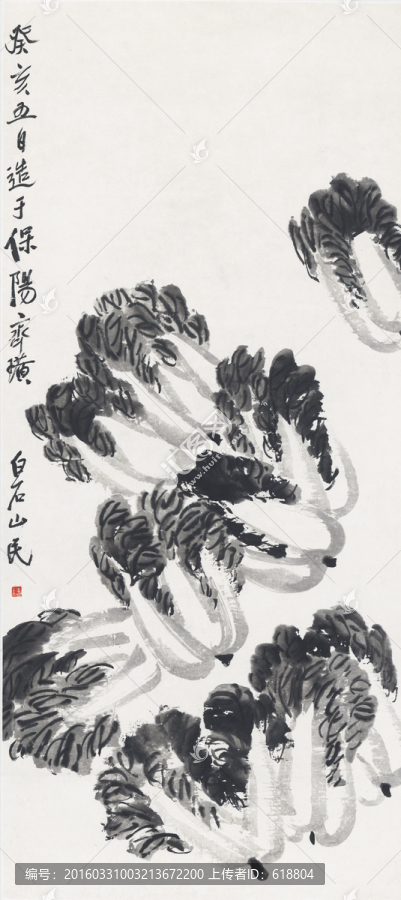 癸亥五日造于保陽齊璜
白石山民
编号：20160331003213672200 上传者ID：618804